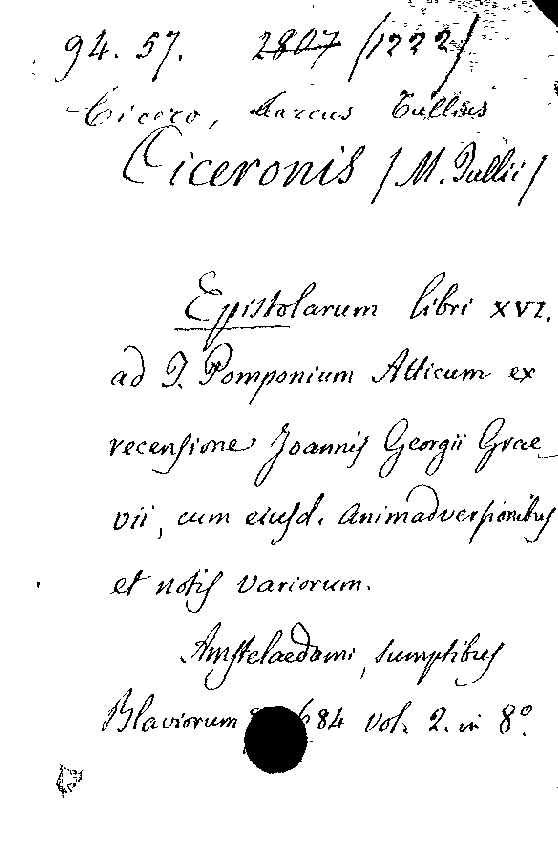 94. 57. 2807 (1222)
Cicero, Marcus Tullius
Ciceronis / M. Tullii /
Epistolarum libri XVI.
ad T. Pomponium Atticum ex
recensione Joannis Georgii Grae
vii, cum eiusd. animadversionibus
et notis variorum.
Amstelaedami, sumptibus
Blaviorum 684 vol. 2. in 8º.